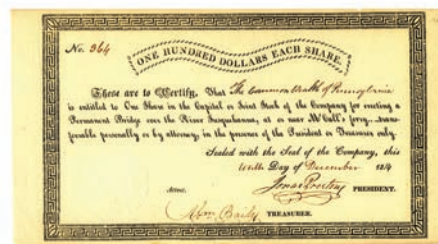 No. 364
ONE HUNDRED DOLLARS EACH SHARE.
These are to Certify, That The Commonwealth of Pennsylvania
is entitled to One Share in the Capital or Joint Stock of the Company for erecting a
Permanent Bridge over the River Susquehanna, at or near M'Call's ferry,...trans-
ferable personally or by attorney, in the presence of the President or Treasurer only.
Sealed with the Seal of the Company, this
Day of December 1814
PRESIDENT.
Attest.
TREASURER.